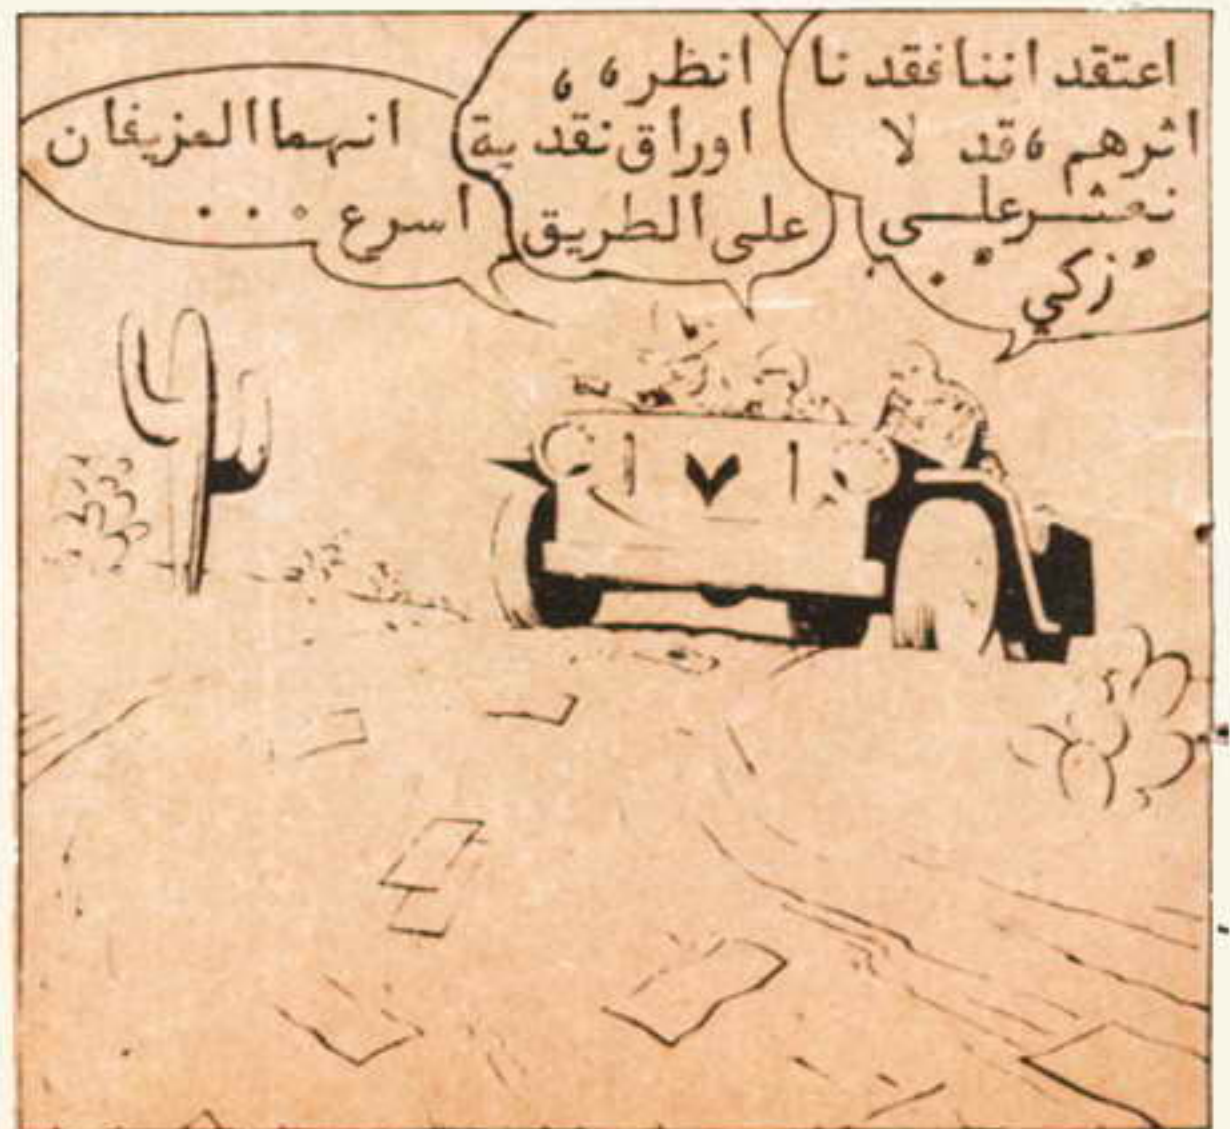 اعتقد اننا فقدنا
أثرهم، قد لا
نعثر على
"زكي".
انظر، ،
أوراق نقدية
على الطريق
انهما المزيفان
أسرع ...